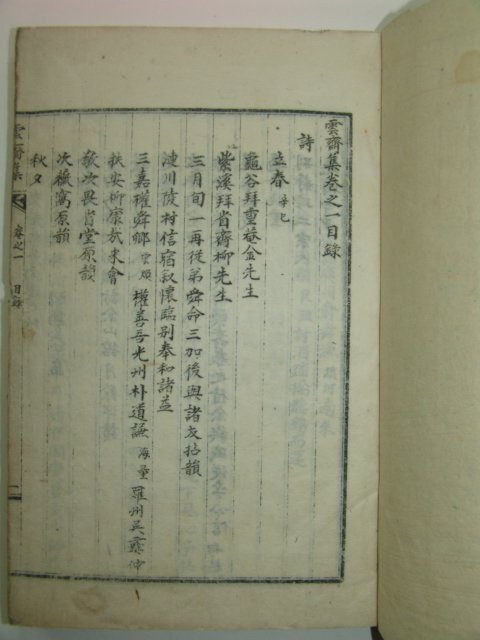 雲齋集卷之一目錄
詩
立春 辛巳
龜谷拜重菴金先生
紫溪拜省齋柳先生
三月旬一再從弟舜命三加後與諸友拈韻
漣川陂村信宿叙懷臨別奉和諸益
三嘉權舜卿 雲煥 權善吾光州朴道謙 海量 羅州吳 仲
扶安柳 來會
敬次畏省堂原韻
次 窩原韻
秋夕
雲齋集 卷之一 目錄 一